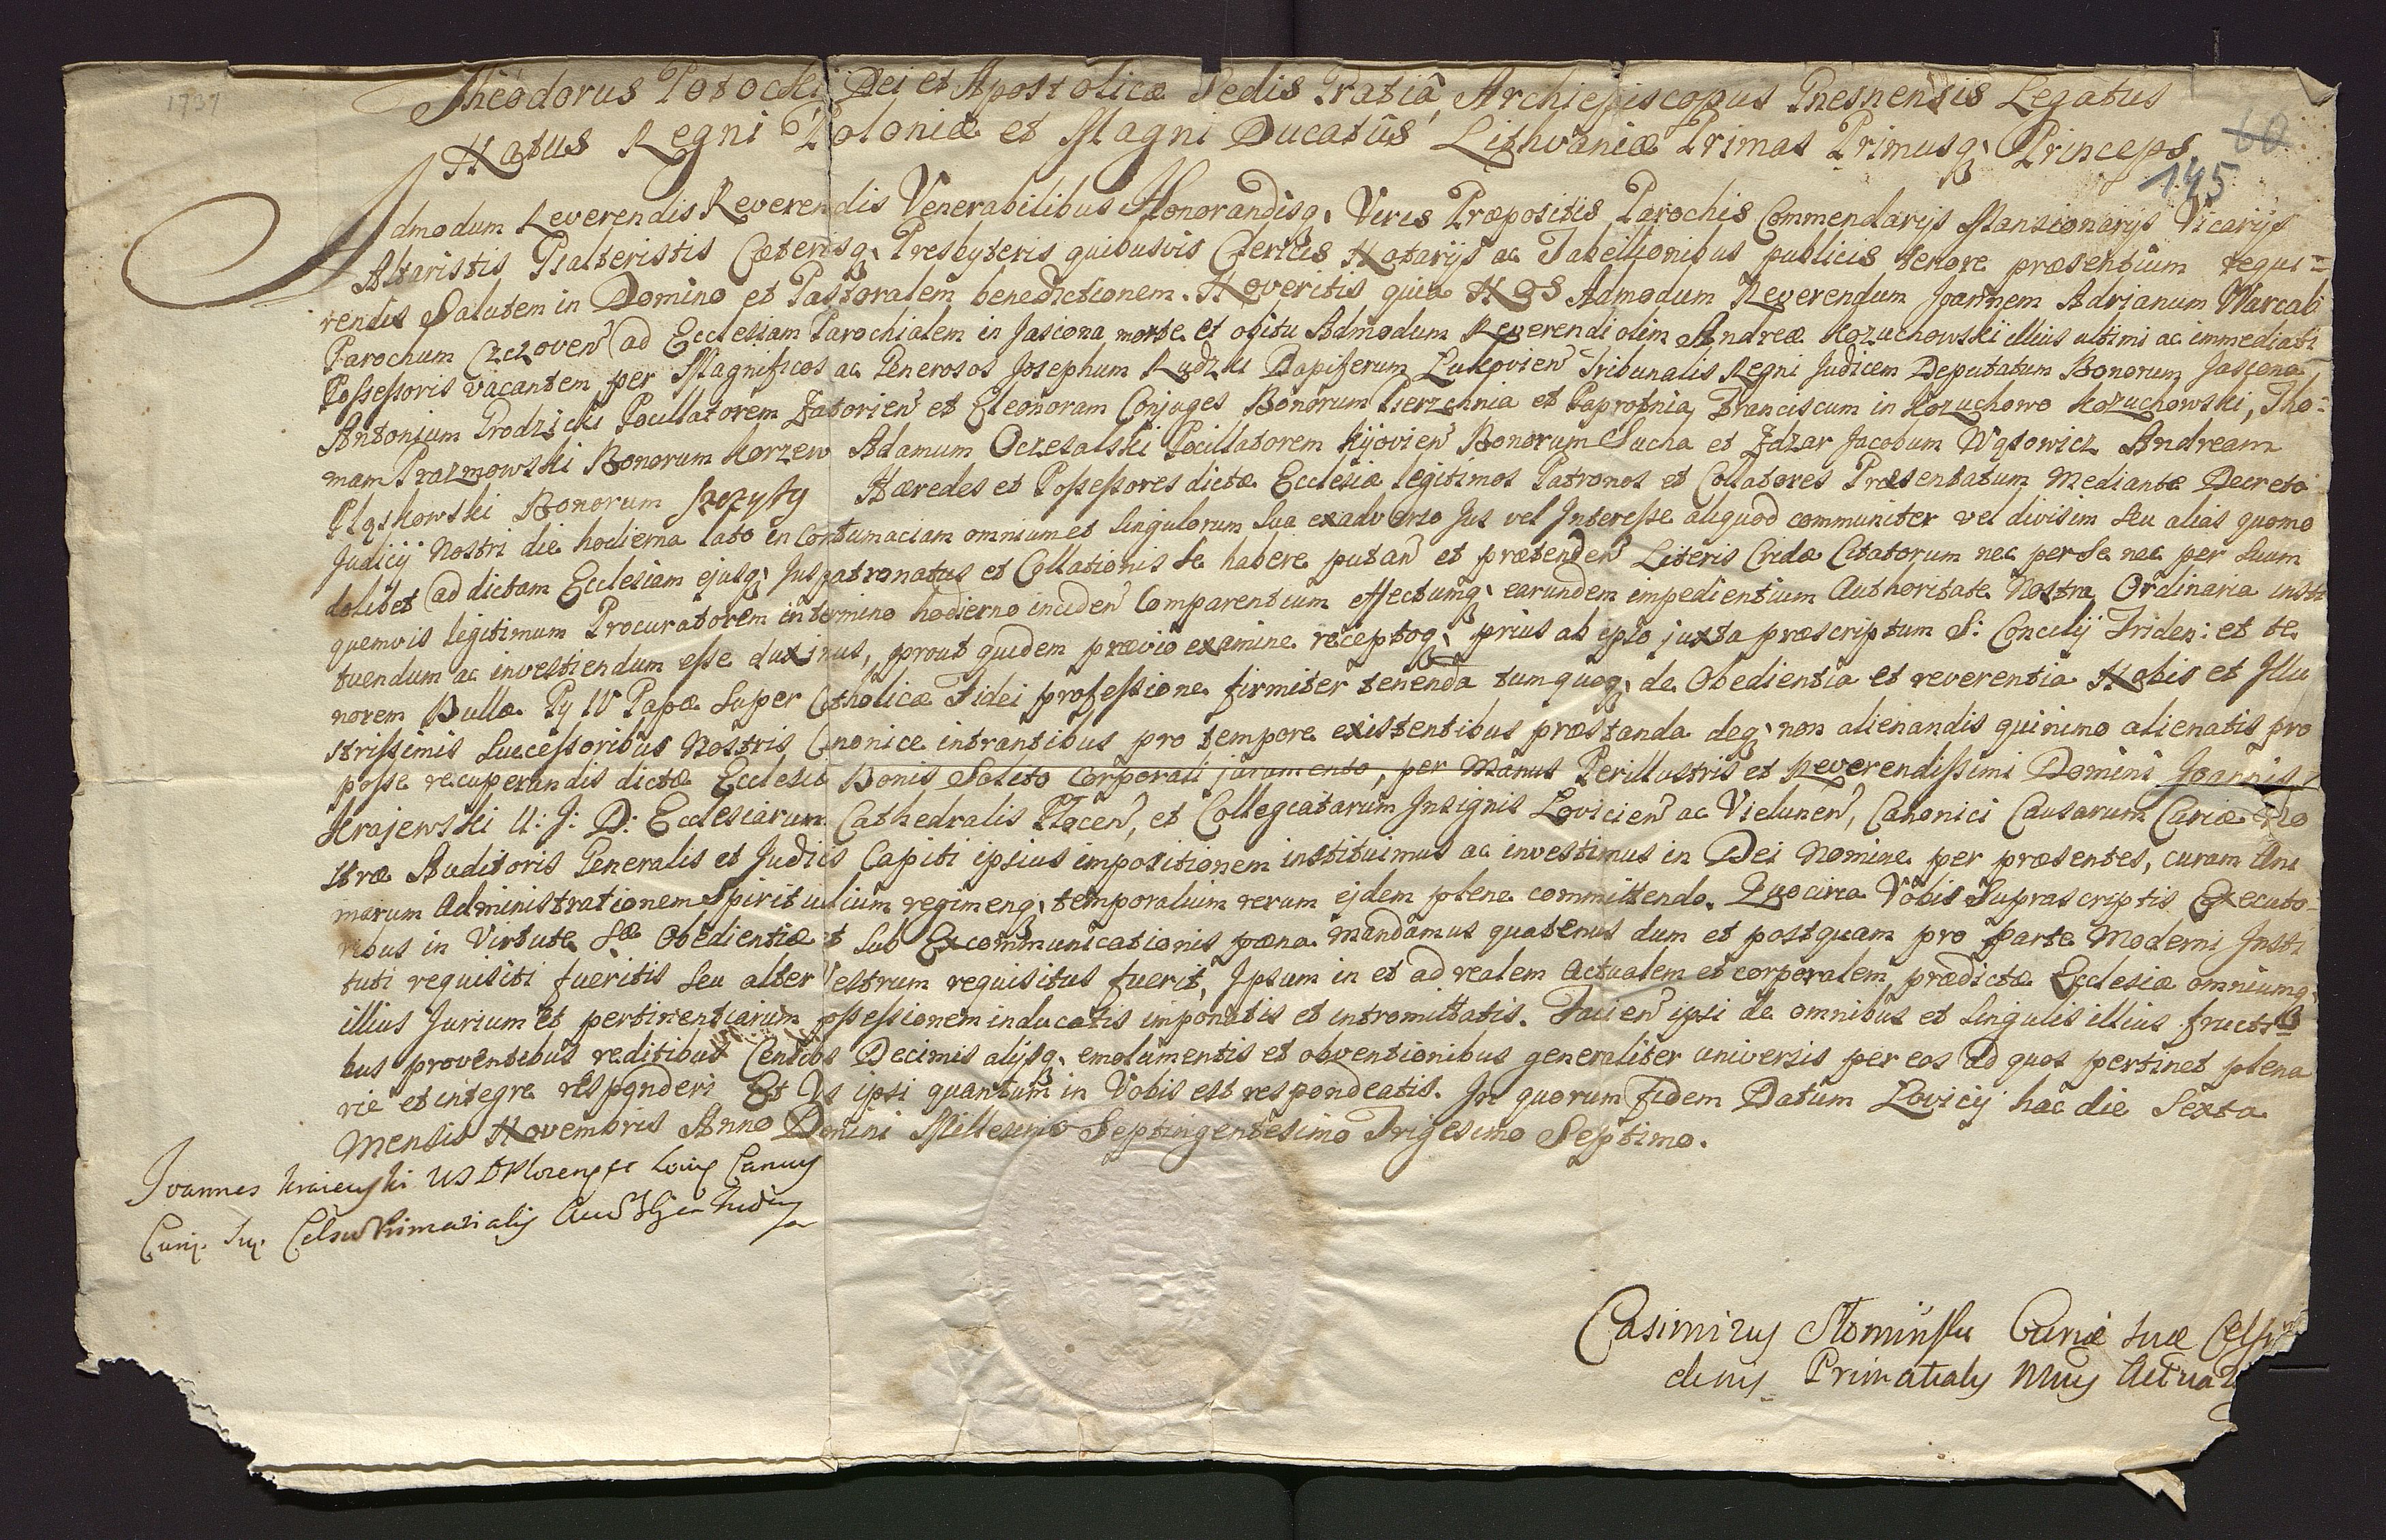 1737
Theodorus Potocki Dei et Apostolicæ Sedis Gratiâ Archiepiscopus Gnesnensis Legatus
Natus Regni Poloniæ et Magni Ducatûs Lithvaniæ Primas Primusq; Princeps
60
145
Admodum Reverendis Reverendis Venerabilibus Honorandisq; Viris Præpositis Parochis Commendarijs Mansionarijs Vicarijs
Altaristis Psalteristis Cæterisq; Presbyteris quibusvis Clericis Notarijs ac Tabellionibus publicis tenore præsentium requi=
rendis Salutem in Domino et Pastoralem benedictionem. Noveritis quia Nos Admodum Reverendum Joannem Adrianum
Parochum ad Ecclesiam Parochialem in Jasiona morte et obitu Admodum Reverendi olim Andreæ Kozuchowski illius ultimi ac immediati
Possessoris vacantem per Magnificos ac Generosos Josephum Rudzki Dapiferum Lukovien Tribunalis Regni Judicem Deputatum Bonorum Jasiona
Antonium Grodzicki Pocillatorem Zatorien et Eleonoram Conjuges Bonorum Pierzchnia et Paprotnia, Franciscum in Kozuchowo Kozuchowski, Tho=
mam Prazmowski Bonorum Korzen Adamum Oczesalski Pocillatorem Kijovien Bonorum Sucha et Zdzar Jacobum Wąsowicz Andream
Pląskowski Bonorum Hæredes et Possessores dictæ Ecclesiæ legitimos Patronos et Collatores Præsentatum Mediante Decreto
Judicij Nostri die hodierna lato in Contumaciam omnium et Singulorum Sua exadverso Jus vel Interesse aliquod communiter vel divisim seu alias quomo
dolibet ad dictam Ecclesiam ejusq; Juspatronatus et Collationis se habere putan et prætenden Literis Cridæ Citatorum nec per se nec per suum
quemvis legitimum Procuratorem in termino hodierno inciden Comparentium effectumq; earundem impedientium Authoritate Nostra Ordinaria insti
tuendum ac investiendum esse duximus, prout quidem prævio examine receptoq; prius ab ipso juxta præscriptum S: Concilij Triden: et te
norem Bullæ Pij IV Papæ Super Catholicæ Fidei professione firmiter tenenda tum quoq; de Obedientia et reverentia Nobis et Illu
strissimis Successoribus Nostris Canonice intrantibus pro tempore existentibus præstanda deq; non alienandis quinimo alienatis pro
posse recuperandis dictæ Ecclesiæ Bonis Solito Corporali juramento, per Manus Perillustris et Reverendissimi Domini Joannis
Krajewski U: J: D: Ecclesiarum Cathedralis Plocen, et Collegiatarum Insignis Lovicien ac Vielunen, Canonici Causarum Curiæ No
stræ Auditoris Generalis et Judicis Capiti ipsius impositionem instituimus ac investimus in Dei Nomine per præsentes, curam Ani
marum Administrationem Spiritualium regimenq; temporalium rerum ejdem plene committendo. Quocirca Vobis Suprascriptis Executo
ribus in Virtute Sæ Obedientiæ et Sub Excommunicationis pæna mandamus quatenus dum et postquam pro parte Moderni Insti
tuti requisiti fueritis seu alter Vestrum requisitus fuerit, Ipsum in et ad realem Actualem et corporalem, prædictæ Ecclesiæ omniumq;
illius Jurium et pertinentiarum possessionem inducatis imponatis et intromittatis. Facien ipsi de omnibus et Singulis illius fructi
bus proventibus reditibus Censibus Decimis alijsq; emolumentis et obventionibus generaliter universis per eos ad quos pertinet plena
rie et integre responderi Et Vs ipsi quantum in Vobis est respondeatis. In quorum fidem Datum Lovicij hac die Sexta
Mensis Novembris Anno Domini Millesimo Septingentesimo Trigesimo Septimo.
Joannes Kraiewski
Primatialis
Casimirus Słominski Curiæ Suæ
Primatialis